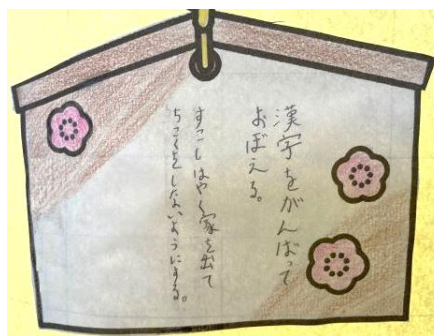 漢字をがんばって
おぼえる。
すこしはやく家を出て
ちこくをしないようにする。